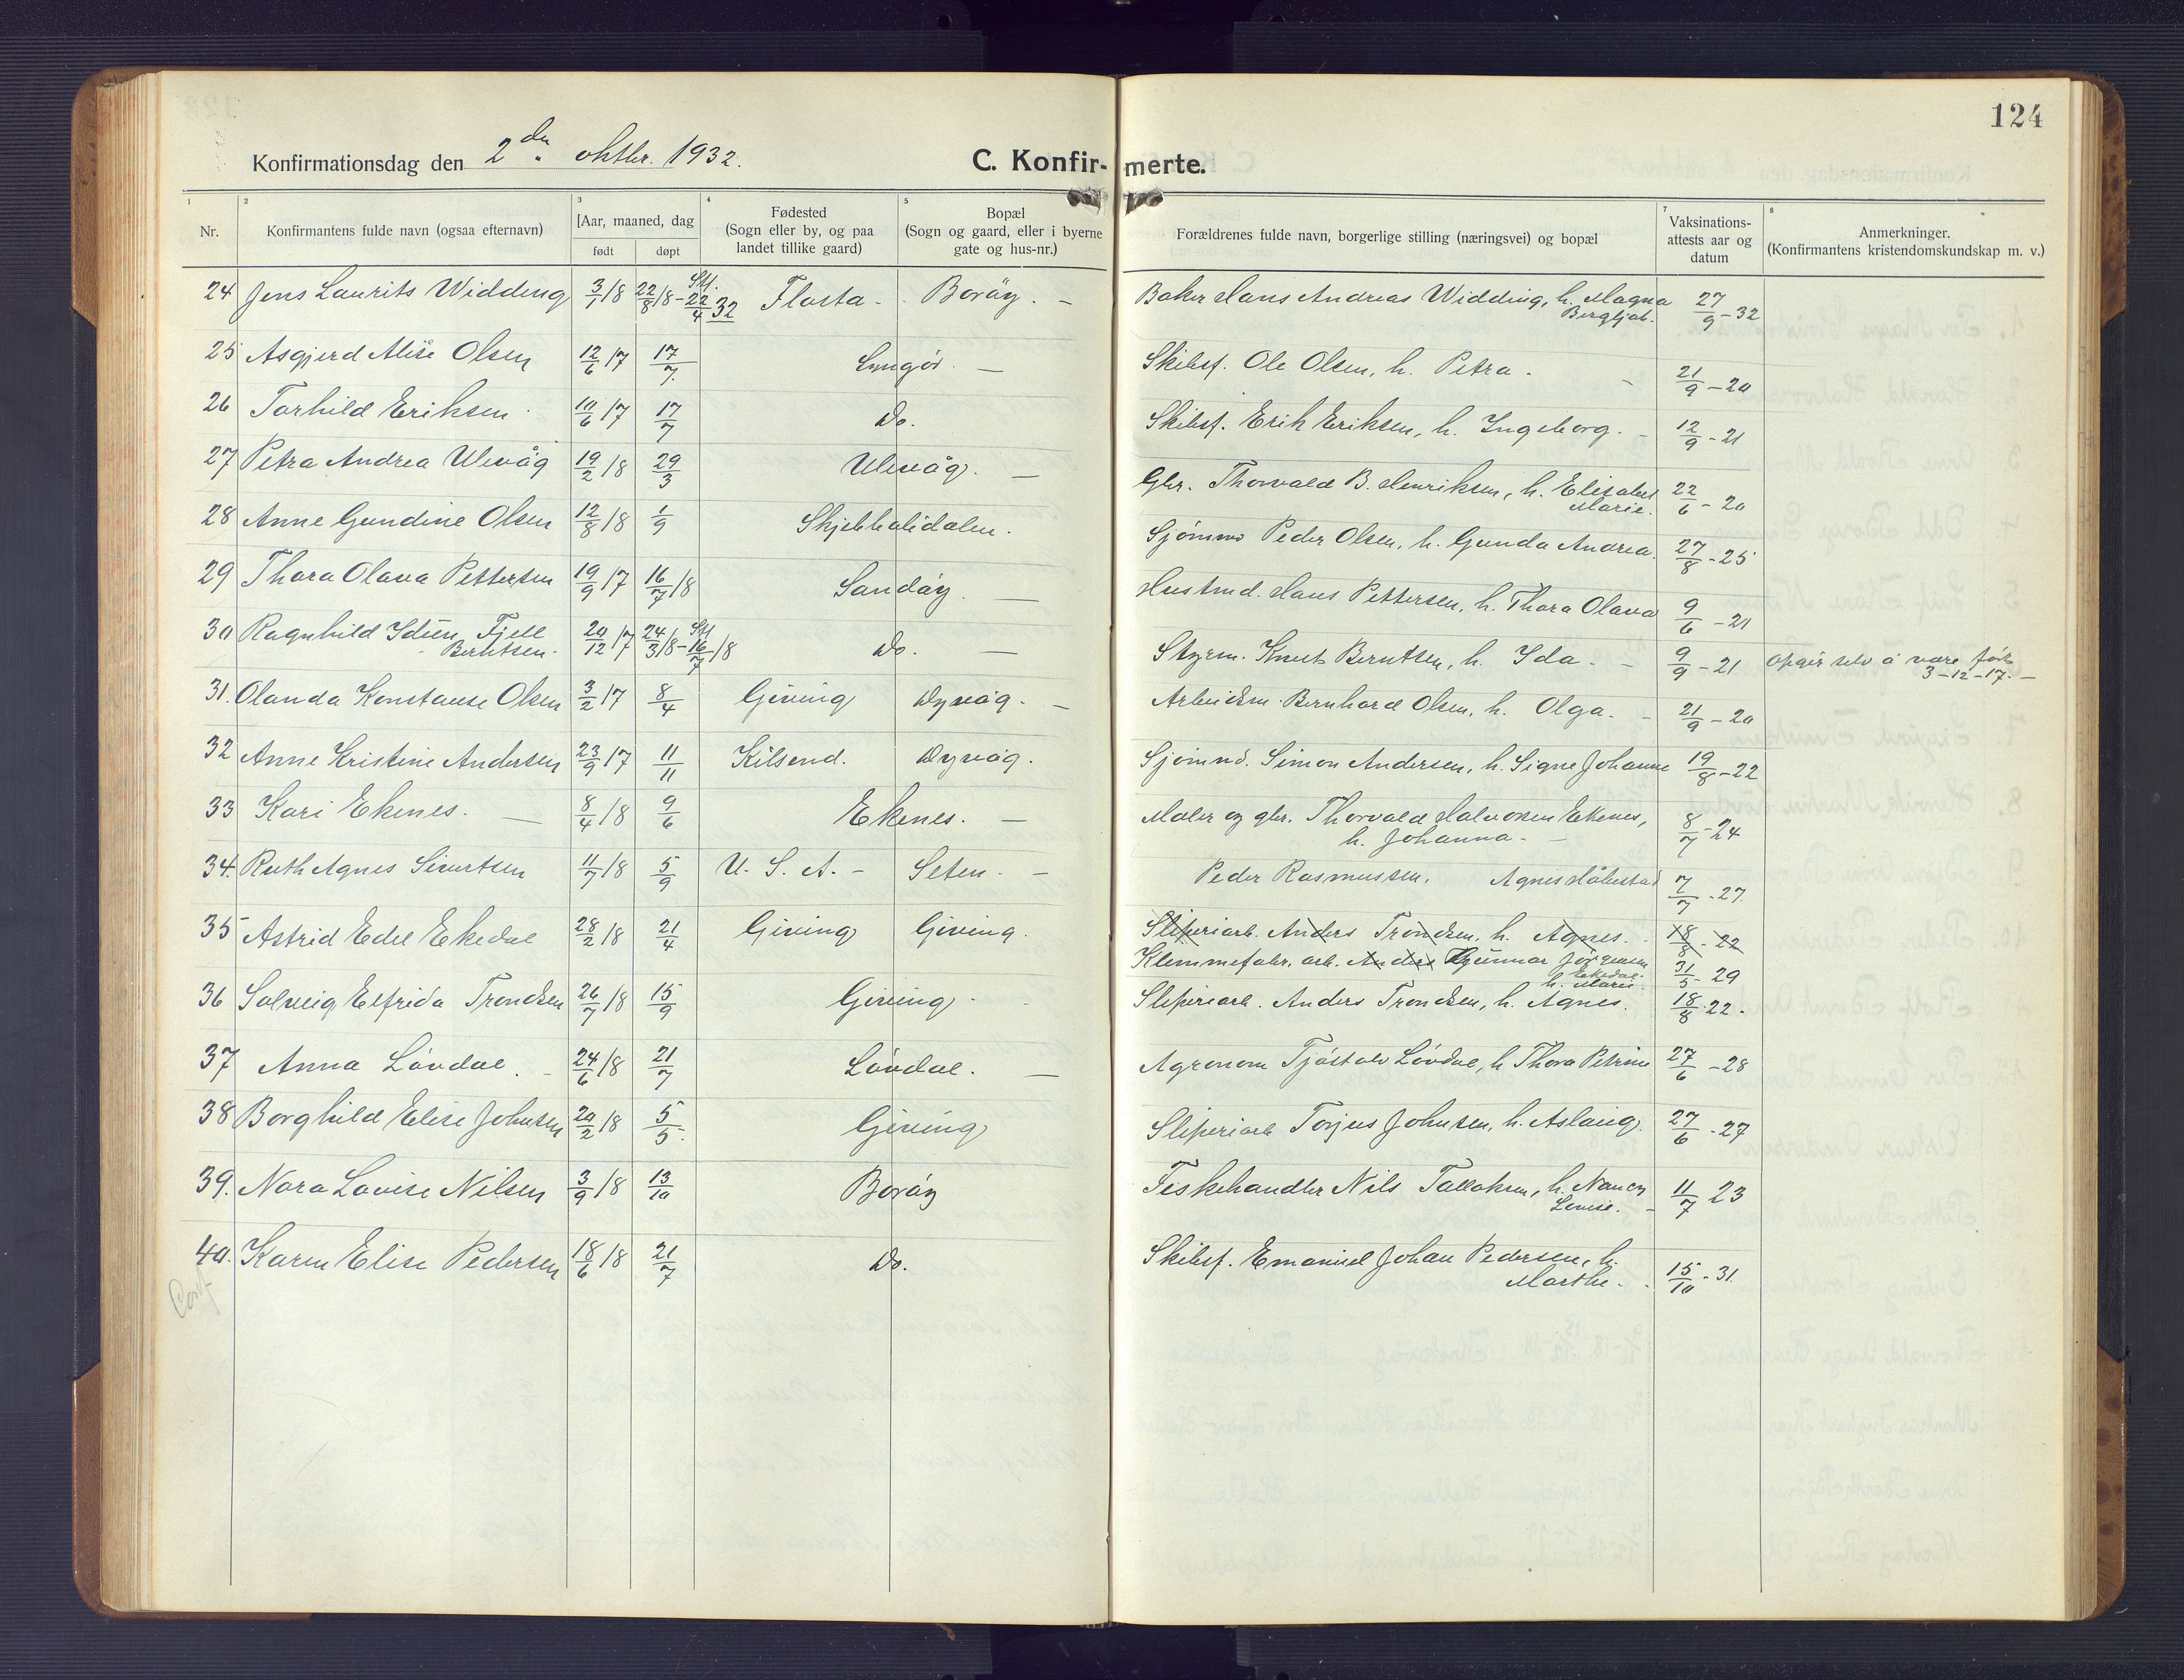 124
Konfirmationsdag den 2den oktbr. 1932.
C. Konfir- merte.
1 2 3 4 5 7 8
Nr. Konfirmantens fulde navn (ogsaa efternavn) [Aar, maaned, dag født døpt Fødested (Sogn eller by, og paa landet tillike gaard) Bopæl (Sogn og gaard, eller i byerne gate og hus-nr.) Forældrenes fulde navn, borgerlige stilling (næringsvei) og bopæl Vaksinations-attests aar og datum Anmerkninger. (Konfirmantens kristendomskundskap m. v.)
24 Jens Laurits Widding 3/1 18 22/8 18 - 22/4 32 Flosta - Borøy. - Baker Hans Andreas Widding, h. Magna Bergljot. 27/9 - 32
25 Asgjerd Alise Olsen 12/6 17 17/7. Lyngør. - Skibsf. Ole Olsen, h. Petra. - 21/9 - 20
26 Torhild Eriksen. 10/6 17 17/7 Do. Skibsf. Erik Eriksen, h. Ingeborg. - 12/9 - 21
27 Petra Andrea Ulevåg 19/2 18 29/3 Ulevåg. - Gbr. Thorvald B. Henriksen, h. Elisabet Marie. 22/6 - 20
28 Anne Gundine Olsen 12/8 18 1/9 Skjebbolidalen. Sjømnd Peder Olsen, h. Gunda Andrea. 27/8 - 25
29 Thora Olava Pettersen 19/9 17 16/7 18 Sandøy. - Hustmd. Hans Pettersen, h. Thora Olava 9/6 - 21
30 Ragnhild Idun Fjell Berntsen. 20/12 17 24/3 18 - 16/7 18 Do. - Styrm. Knut Berntsen, h. Ida. - 9/9 - 21 Opgir selv å være født 3-12-17. -
31. Olanda Konstanse Olsen 3/2 17 8/4 Giving Dyvåg. - Arbeidsm. Bernhard Olsen, h. Olga. - 21/9 - 20
32 Anne Kristine Andersen 23/9 17 11/11 Kilsund. Dyvåg. Sjømnd. Simon Andersen, h. Signe Johanne 19/8 - 22
33 Kari Ekenes. - 8/4 18 9/6 Ekenes. - Maler og gbr. Thorvald Halvorsen Ekenes, h. Johanna. - 8/7 - 24
34. Ruth Agnes Sivertsen 11/7 18 5/9 U. S. A. - Seten. - Peder Rasmussen. Agnes Håbestad 7/7 - 27.
35 Astrid Edel Ekedal 28/2 18 21/4 Giving Giving. Sliperiarb. Anders Trondsen, h. Agnes. - 18/8 - 22
Klemmefabr. arb. Anders Gunnar Jörgensen Ekedal. h. Marie. 31/5 - 29
36 Solveig Elfrida Trondsen 26/7 18 15/9 Giving. Sliperiarb. Anders Trondsen, h. Agnes. 18/8 - 22.
37 Anna Løvdal. - 24/6 18 21/7 Løvdal. - Agronom Tjøstolv Løvdal, h. Thora Petrine 27/6 - 28
38 Borghild Elise Johnsen 20/2 18 5/5. Giving Sliperiarb Torjus Johnsen, h. Aslaug. 27/6 - 27
39. Nora Lovise Nilsen 3/9 18 13/10 Borøy Fiskehandler Nils Tallaksen, h. Nancy Lovise. - 11/7 23
40. Karen Elise Pedersen 18/6 18 21/7 Do. Skibsf. Emanuel Johan Pedersen, h. Marthe. - 15/10 - 31.